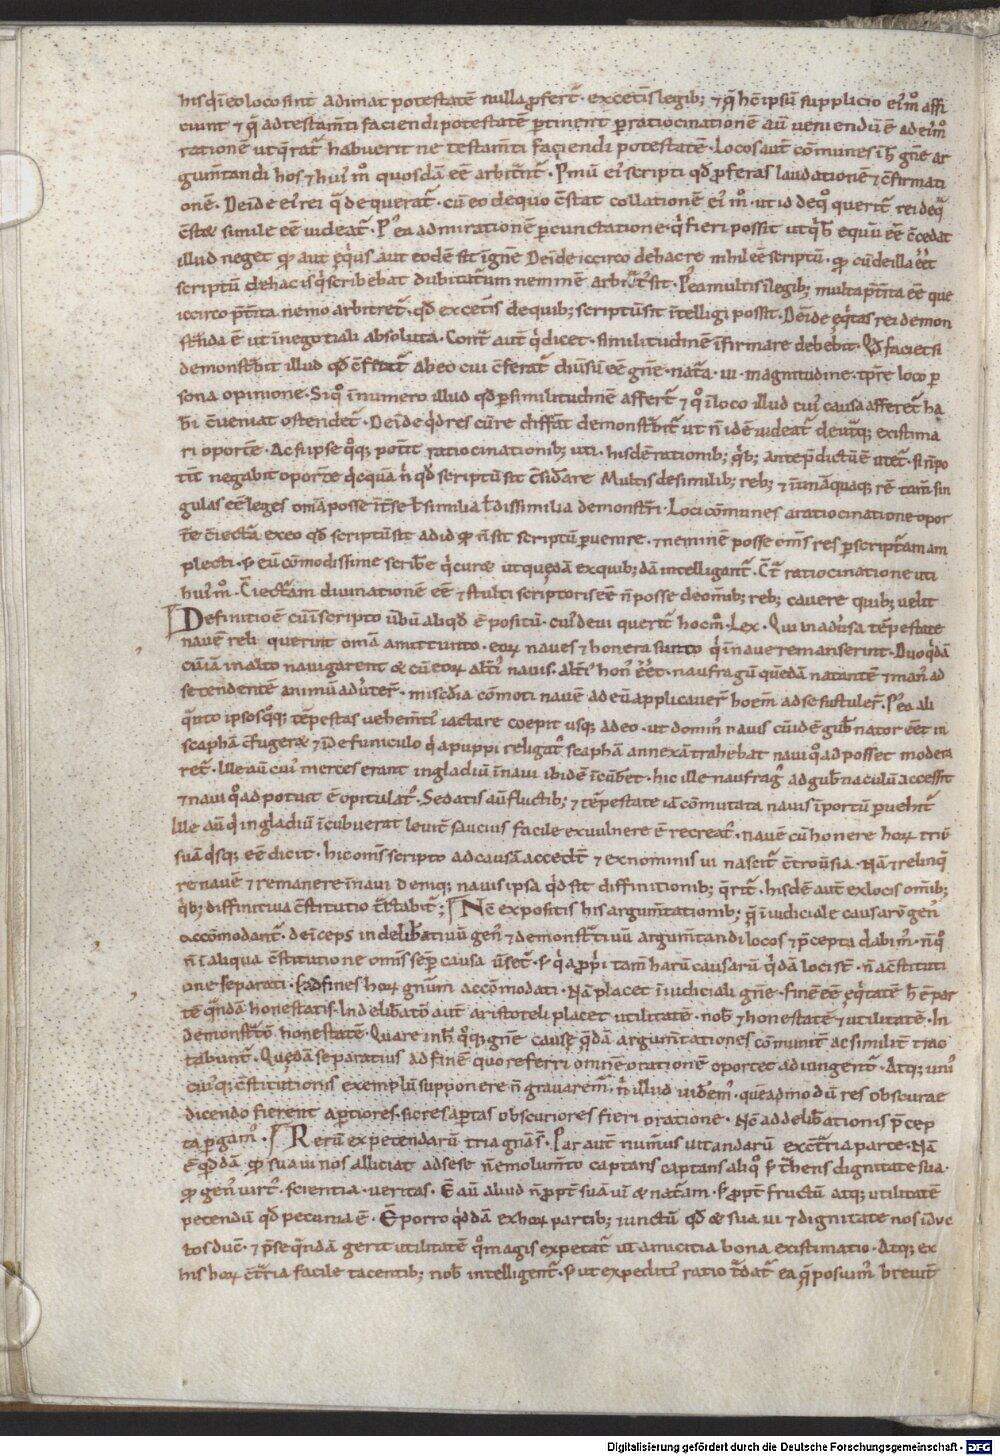 hisq̇ i eo loco sint adimat potestatē nulla ꝓfert᷑. exceṫis legib; ⁊ q̄ hẽ ipsū supplicio ei᷑ mͦ affi
ciunt ⁊ q̄ ad testam̄ti faciendi potestatē ꝑtinent ꝑ ratiocinationē aū ueniendū ē ad ei᷑ mͦ
rationē ut q̄rat᷑ habuerit ne testam̄ti faciendi potestatē. Locos aut̄ cōmunes i h̄ gn̄e ar
gum̄tandi hos ⁊ hui᷑ mͦ quosdā eē arbitrā̄t᷑. P̓mū ei᷑ scripti qd̄ ꝓferas laudationē ⁊ c̄firmati
onē. Deīde ei᷑ rei q̄ de querat᷑. cū eo de quo c̄stat collationē ei᷑ mͦ. ut id deqͦ querit᷑ rei deq̄
c̄stat simile eē uideat᷑. P᷑ ea admirationē ꝑcunctatione. q̇ fieri possit ut q̇ h̄ equū eē c̄cedat
illud neget qͥ aut eq̇us aut eodē sit i gn̄e Deīde iccirco de hac re nihil eē scriptū. qͥ cū de illa eēt
scriptū de hac is q̇ scribebat dubitat᷑um neminē arbit᷑t᷑ sit. P᷑ea multis i legib; multa p̄t̄ita eē que
iccirco p̄t̄ita nemo arbitret᷑. qd̄ exceṫis de quib; scriptū sit ītelligi possit. Deīde eq̇tas rei demon
st᷑nda ē ut i negotiali absoluta. Cont᷑ aut̄ q̇ dicet. similitudinē īfirmare debebit. Qd̄ faciet si
demonst᷑bit illud qd̄ c̄ferat᷑ ab eo cui c̄ferat᷑ diu̓sū eē gn̄e. nat᷑a. ui. magnitudine. tp̄re loco ꝑ
sona opinione. Si qͦ i numero illud qd̄ ꝑ similitudinē affert᷑ ⁊ qͦ i loco illud cui᷑ causa afferet᷑ ha
b̄i c̄ueniat ostendet᷑. Deīde q̇d res cū re diffāt demonst᷑bit᷑ ut n̄ idē uideat᷑ de ut᷑q; existima
ri oporte̅. Ac si ipse qͦq; poťit ratiocinationib; uti. hisdē rationib; q̇b; ante p̄dictū ē utet᷑. si n̄ po
tū negabit oportē q̇cquā n̄ qd̄ scriptū sit c̄sid̓are Multis de similib; reb; ⁊ i unaquaq; rē tam̄ sin
gulas eē leges om̄a posse it̄ se ł similia ł dissimilia demonst᷑ri. Loci cōmunes a ratiocinatione opor
t̄e c̄iectā ex eo qd̄ scriptū sit ad id qͥ n̄ sit scriptū ꝑuenire. ⁊ neminē posse om̄s res ꝑ script᷑am am
plecti. s; eū cōmodissime scrib̓e q̇ curæ ut quędā ex quib;dā intelligant᷑. C̄t᷑ ratiocinatione uti
hui᷑ mͦ. c̄iect᷑am diuinationē eē ⁊ stulti scriptoris eē n̄ posse de om̄ib; reb; cauere quib; uelit
Definitioē cū i scripto u̓bū aliqd̄ ē positū. cui᷑ de ui querit᷑ hoc mͦ. Lex. Qui in adu̓sa tēpestate
nauē reli querint om̄ia amittunto. eoꝝ naues ⁊ honera sunto q̇ i naue remanserint. Duo q̇dā
cū iā in alto nauigarent & cū eoꝝ alt̓i᷑ nauis. alt̓i᷑ hon᷑ eēt. naufragū quēdā natantē ⁊ man᷑ ad
se tendentē animū adu̓ter᷑. misc̄dia cōmoti nauē ad eū applicauer᷑ hoēm ad se sustuler᷑. P᷑ea ali
q̄nto ipsos qͦq; tēpestas uehem̄ti᷑ iactare coepit usq; adeo. ut domin᷑ nauis cū idē gub̄nator eēt in
scaphā c̄fugeret ⁊ īde funiculo q̇ a puppi religat᷑ scaphā annexā trahebat naui qͦ ad posset modera
ret᷑. Ille aū cui᷑ merces erant in gladiū i naui ibidē icūbet. hic ille naufrag᷑ ad gub̄naculū accessit
⁊ naui qͦ ad potuit ē opitulat᷑. Sedatis aū fluctib; ⁊ tēpestate iā cōmutata nauis i portū ꝑuehit᷑
Ille aū q̇ in gladiū icubuerat leuit̓ saucius facile ex uulnere ē recreat᷑. nauē cū honere hoꝝ triū
suā q̇sq; eē dicit. hic om̄s scripto ad causā accedūt ⁊ ex nominis ui nascit᷑ c̄trou̓sia. Nā ⁊ relinq̄
re nauē ⁊ remanere i naui denıq; nauis ipsa q̇d sit diffinitionib; q̄rit᷑. hisdē aut̄ ex locis om̄ib;
q̇b; diffinitiua c̄stitutio t᷑ctabit᷑; Nc̄ expositis his argum̄tationib; q̄ i iudiciale causarū gen᷑
accōmodant᷑. deiceps in delib̄atiuū gen᷑ ⁊ demonst᷑tiuū argum̄tandi locos ⁊ p̄cepta dabim᷑. n̄ qͦ
n̄ i aliqua c̄stitutione om̄is semp̄ causa u̓set᷑. s; q̇a ꝓp̓i tam̄ harū causarū q̇dā loci st̄. n̄ a c̄stituti
one separati. s; ad fines hoꝝ gn̄um accōmodati. Nā placet i iudiciali gn̄e. finē eē eq̇tatē h̄ ē par
tē q̄ndā honestatis. In delib̄atōe aut̄ aristoteli placet utilitatē. nob̄ ⁊ honestatē ⁊ utilitatē. In
demonst᷑tōe honestatē. Quare in h̄ qͦq; gn̄e causę q̄dā argum̄tationes cōmunit̓ ac similit̓ trac
tabunt᷑. Quędā separatius ad finē quo referri omnē orationē oportet adiungent᷑. Atq; uni᷑
cui᷑q; c̄stitutionis exemplū supponere n̄ grauarem᷑. n̄ illud uid̓em᷑. quēadmodū res obscurae
dicendo fierent aꝑtiores. sic res aꝑtas obscuriores fieri oratione. Nc̄ ad delib̄ationis p̄cep
ta ꝑgam᷑. Rerū expetendarū tria gn̄a st̄. Par aut̄ num̓us uitandarū ex c̄t᷑ria parte. Nā
ē qd̄dā qͥ sua ui nos alliciat ad sese n̄ emolum̄to captans captans aliqͦ s; t᷑hens dignitate sua.
qͥ gen᷑ uirt᷑. scientia. ueritas. Ē aū aliud n̄ ꝓpt̓ suā uī & nat᷑am. s; ꝓpt̓ fructū atq; utilitatē
petendū qd̄ pecunia ē. Ē porro q̇ddā ex hoꝝ partib; iunctū qd̄ & sua ui ⁊ dignitate nos iduc
tos duc̄. ⁊ p̄ se q̄ndā gerit utilitatē qͦ magis expetat᷑ ut amicitia bona existimatio. Atq; ex
his hoꝝ c̄t᷑ria facile tacentib; nob̄ intelligent᷑. s; ut expediti᷑ ratio t᷑dat᷑ ea q̄ posuim᷑ breuit̓
Digitalisierung gefördert durch die Deutsche Forschungsgemeinschaft - DFG